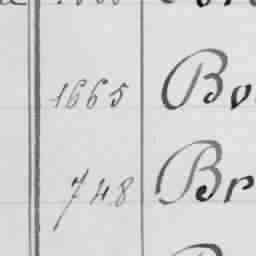 1665 Bo
748 Br